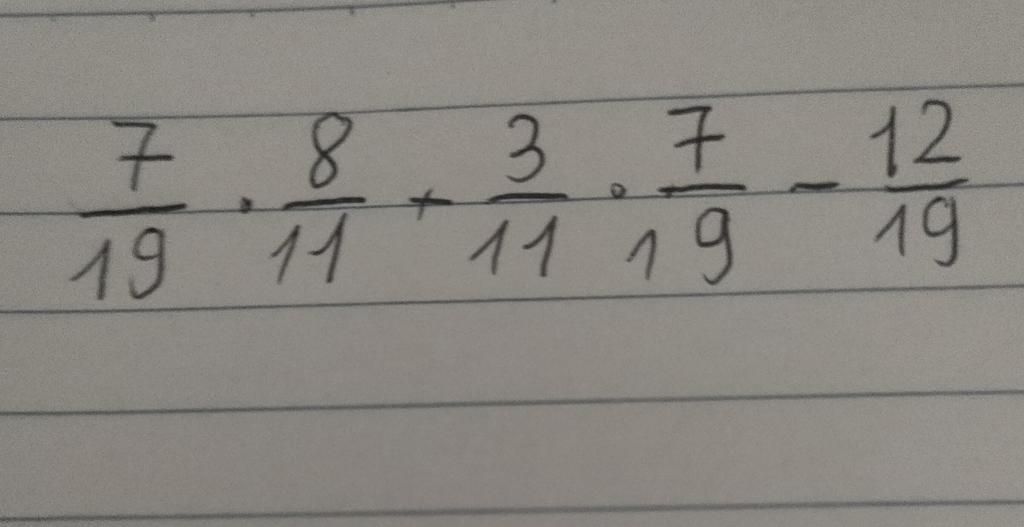 7/19 · 8/11 + 3/11 · 7/19 - 12/19